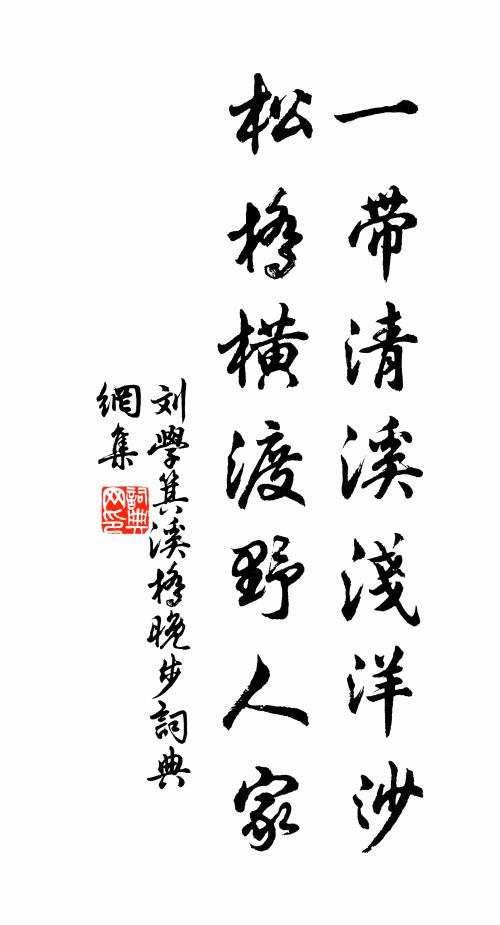 一帶清溪淺洋沙
松橋橫渡野人家
刘學箕溪橋晚步詞典
網集
詞典
网印